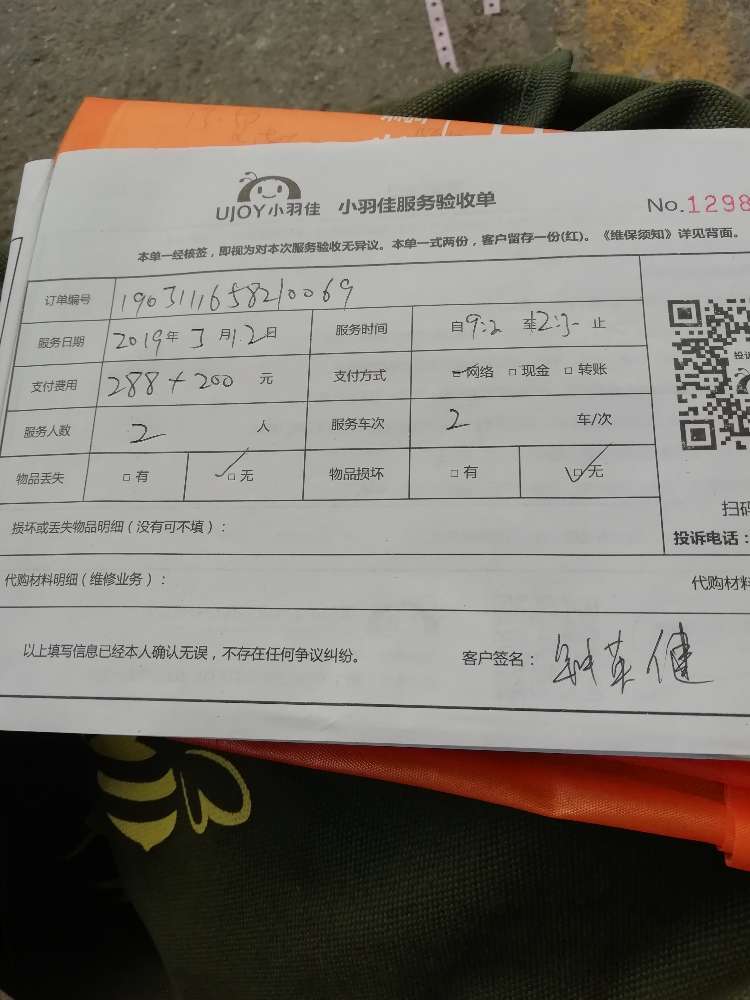 UJOY小羽佳 小羽佳服务验收单 No.1298
本单一经核签，即视为对本次服务验收无异议。本单一式两份，客户留存一份(红)。《维保须知》详见背面。
订单编号 1903111658210069
服务日期 2019年3月12日 服务时间 自9:2 至2:3- 止
支付费用 288+200 元 支付方式 网络 现金 转账
服务人数 2 人 服务车次 2 车/次
物品丢失 有 无 物品损坏 有 无
扫码
损坏或丢失物品明细（没有可不填）：
投诉电话：
代购材料明细（维修业务）： 代购材料
以上填写信息已经本人确认无误，不存在任何争议纠纷。 客户签名：